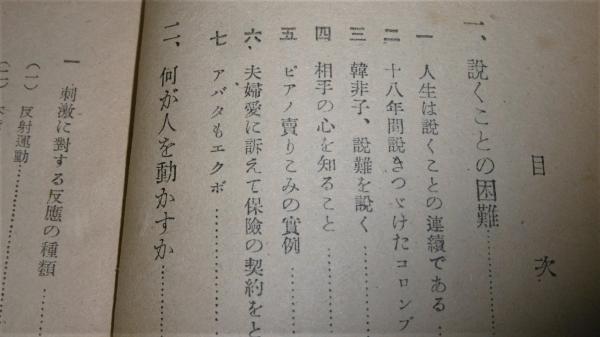 目次
一、説くことの困難
一 人生は説くことの連續である
二 十八年間説きつゞけたコロンブ
三 韓非子、説難を説く
四 相手の心を知ること
五 ピアノ賣りこみの實例
六 夫婦愛に訴えて保險の契約をと
七 アバタもエクボ
二、何が人を動かすか
一 刺激に對する反應の種類
(一) 反射運動